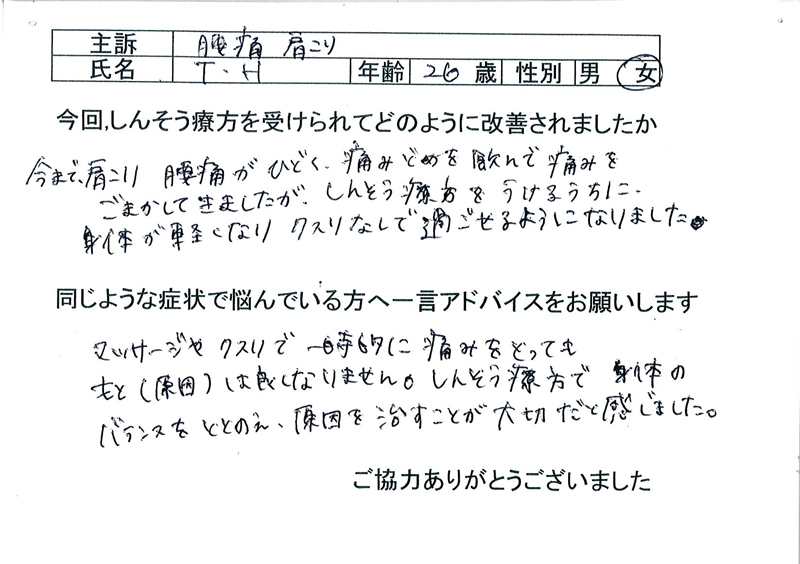 主訴 腰痛 肩こり
氏名 T・H 年齢 26 歳 性別 男 女
今回,しんそう療方を受けられてどのように改善されましたか
今まで、肩こり 腰痛がひどく、痛みどめを飲んで痛みを
ごまかしてきましたが、しんそう療方をうけるうちに、
身体が軽くなり クスリなしで過ごせるようになりました。
同じような症状で悩んでいる方へ一言アドバイスをお願いします
マッサージやクスリで一時的に痛みをとっても
もと(原因)は良くなりません。しんそう療方で身体の
バランスをととのえ、原因を治すことが大切だと感じました。
ご協力ありがとうございました